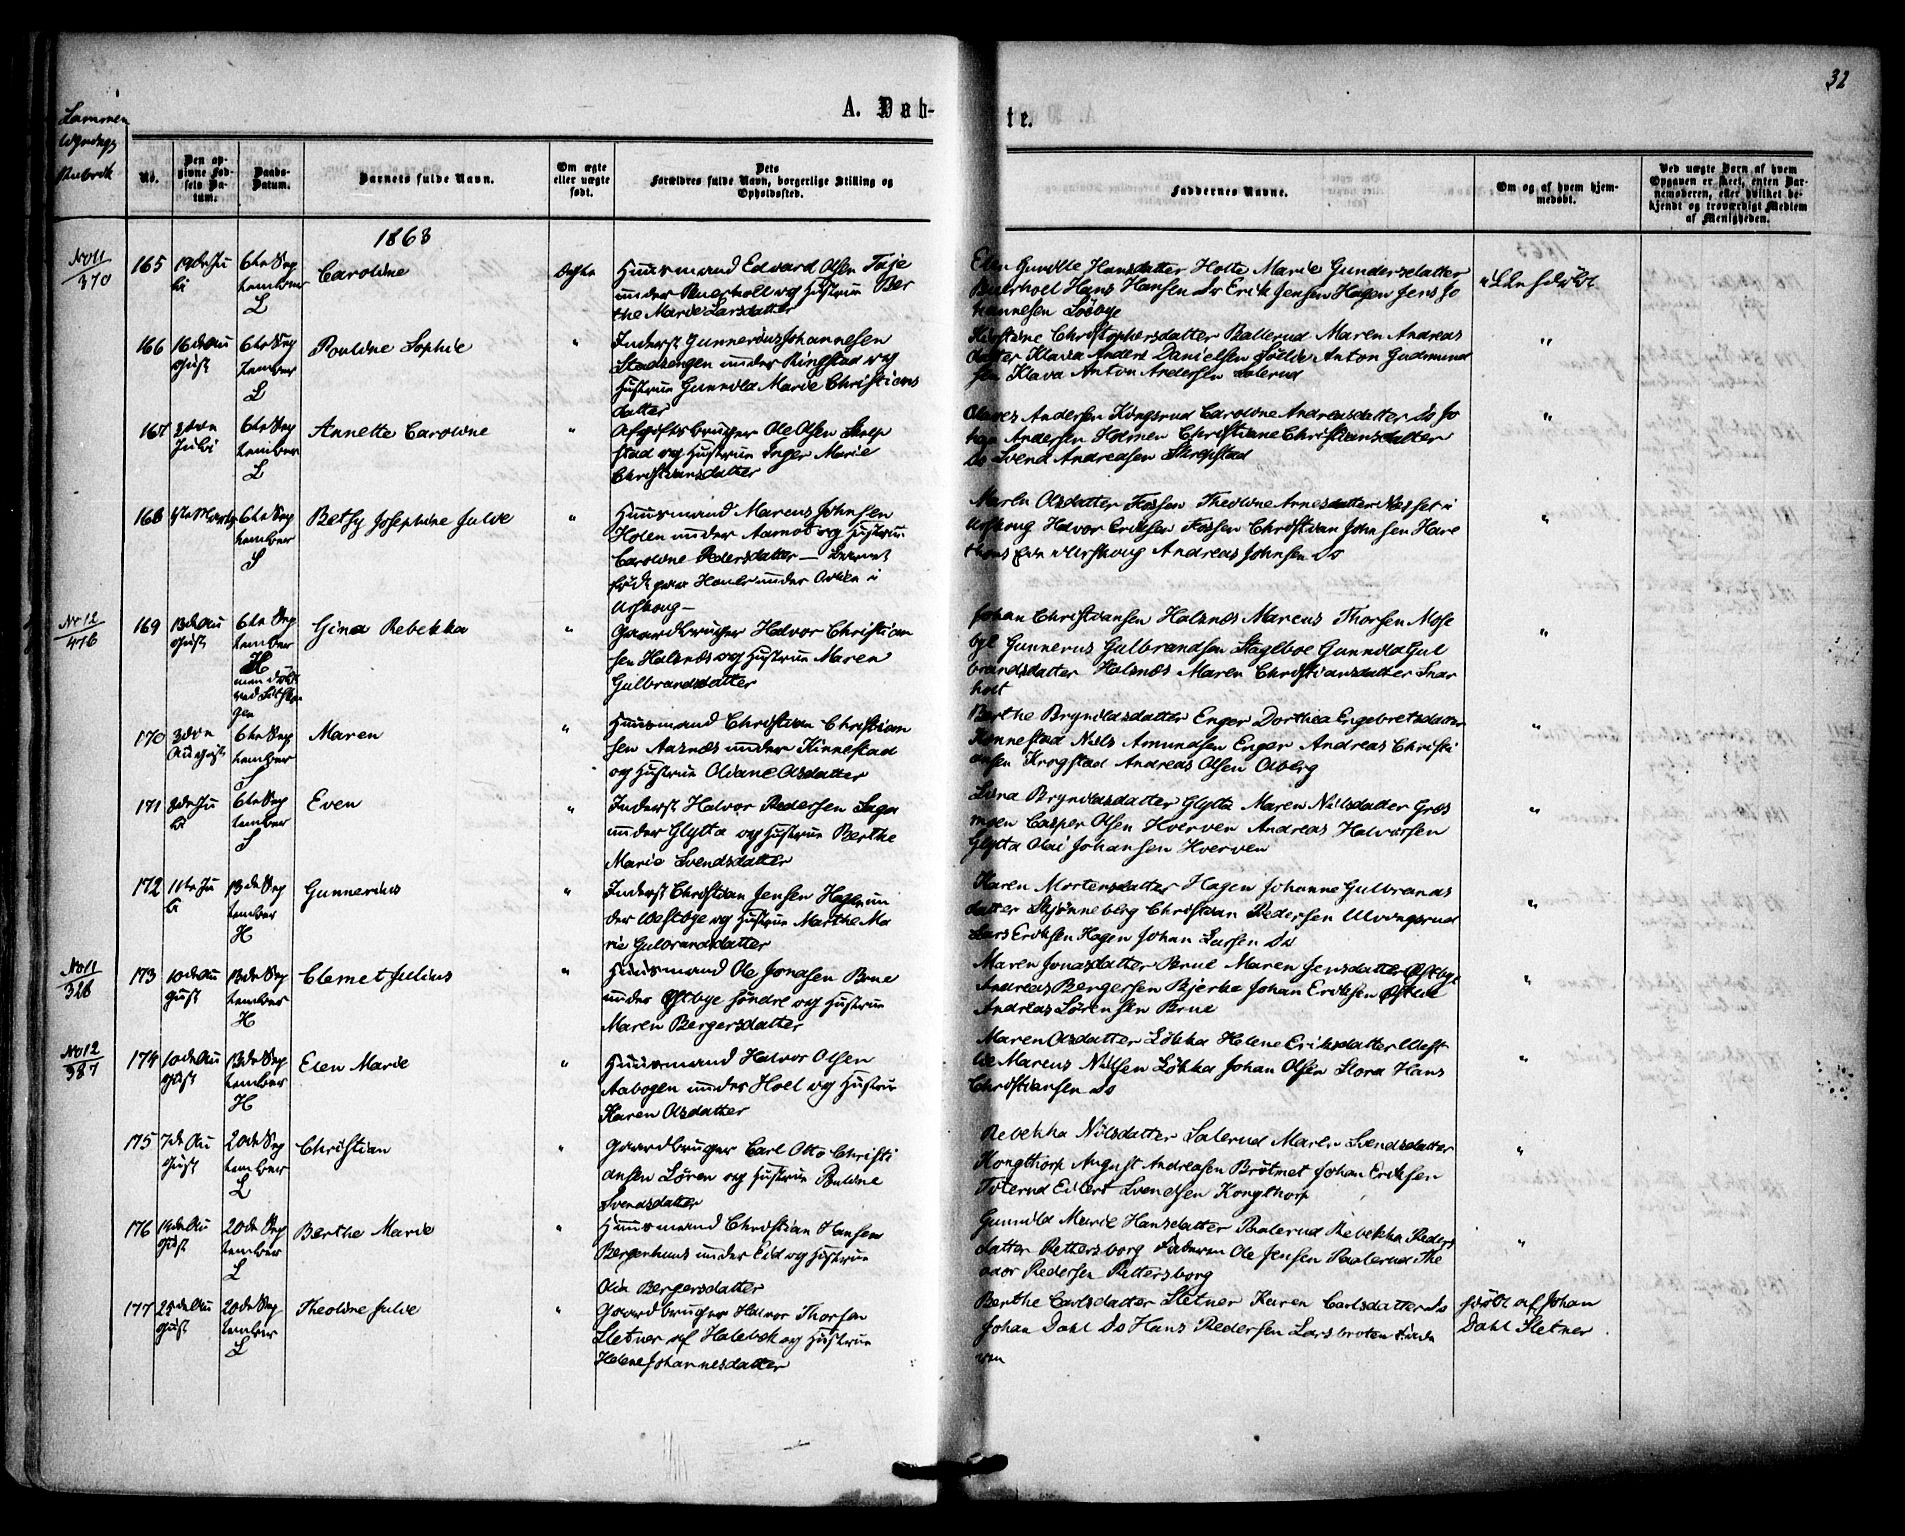 32
A. Døb-
te.
No.
Den op-
givne Fød-
sels Da-
tum.
Daabs-
Datum.
Barnets fulde Navn.
Om ægte
eller uægte
født.
Dets
Forældres fulde Navn, borgerlige Stilling og
Opholdssted.
Faddernes Navne.
Om og af hvem hjem-
medøbt.
Ved uægte Børn af hvem
Opgaven er skeet, enten Bar-
nemoderen, eller hvilket be-
kjendt og troværdigt Medlem
af Menigheden.
1863
No 11
370
165
6te Sep
tember
L
Caroline
Ægte
Huusmand Edvard Olsen
under og Hustrue Ber
the Marie Larsdatter
Hansdatter Holte Marie Gundersdatter
Hans Hansen Do Erik Jensen Hagen Jens Jo
hannesen
166
16de Au
gust
6te Sep
tember
L
Pouline Sophie
"
Inderst Gunnerius Johannesen
Stadsengen under Ringstad og
Hustrue Gunnild Marie Christians
datter
Christophersdatter Ballerud Maren Andreas
datter Klava Anders Danielsen Anton Gudmund
sen Klava Anton Andersen
"
167
6te Sep
tember
L
Annette Caroline
"
Afgiftsbruger Ole Olsen Skrep
stad og Hustrue Inger Marie
Christiansdatter
Andersen Kongsrud Caroline Andreasdatter Do Jo
han Andersen Holmen Christiane Christiansdatter
Do Svend Andreasen Skrepstad
"
168
6te Sep
tember
S
Betsy Josephine Julie
"
Huusmand Marcus Johnsen
Holen under Aamot og Hustrue
Caroline Pedersdatter — Barnet
født paa under i
Urskoug —
Maren Olsdatter Fossen Theoline Arnesdatter Nesset i
Urskoug Halvor Eriksen Fossen Christian Johnsen Hare
Urskoug Andreas Johnsen Do
"
No 12
416
169
13de Au
gust
6te Sep
tember
H
Gina Rebekka
"
Gaardbruger Halvor Christian
sen Halsnæs og Hustrue Maren
Gulbrandsdatter
Johan Christiansen Halsnæs Marcus Thorsen Mose
bye Gunnerus Gulbrandsen Gunnild Gul
brandsdatter Halsnæs Maren Christiansdatter Snar
holt
"
170
August
6te Sep
tember
S
Maren
"
Huusmand Christian Christian
sen Aasnæs under Kinnestad
og Hustrue Oliane Olsdatter
Berthe Bryndlsdatter Enger Dorthea Engebretsdatter
Kinnestad Nils Amundsen Enger Andreas Christi
ansen Krogstad Andreas Olsen Olberg
"
171
6te Sep
tember
S
Even
"
Inderst Halvor Pedersen
under Glytta og Hustrue Berthe
Marie Svendsdatter
Lina Bryndlsdatter Glytta Maren Nilsdatter
Casper Olsen Hverven Andreas Halvorsen
Glytta Olai Johansen Hverven
"
172
11te Ju
li
13de Sep
tember
H
Gunnerius
"
Inderst Christian Jensen Hagen un
der Westbye og Hustrue Marthe Ma
rie Gulbrandsdatter
Karen Mortensdatter Hagen Johanne Gulbrands
datter Skjønneberg Christian Pedersen Ulvingsrud
Lars Eriksen Hagen Johan Larsen Do
"
No 11
328
173
10de Au
gust
13de Sep
tember
H
Clemet Julius
"
Huusmand Ole Jonasen Brue
under Østbye søndre og Hustrue
Maren Bergersdatter
Maren Jonasdatter Brue Maren Jensdatter Østbye
Andreas Bergersen Bjerke Johan Eriksen Østbye
Andreas Sørensen Brue
"
No 12
387
174
10de Au
gust
13de Sep
tember
H
Elen Marie
"
Huusmand Halvor Olsen
Aabogen under Hoel og Hustrue
Karen Olsdatter
Maren Olsdatter Løkka Helene Eriksdatter West
bye Marcus Nilsen Løkka Johan Olsen Hans
Christiansen Do
"
175
7de Au
gust
20de Sep
tember
L
Christian
"
Gaardbruger Carl Otto Christi
ansen Løren og Hustrue Pauline
Svendsdatter
Rebekka Nilsdatter Maren Svendsdatter
Kongthorp August Andreasen Brøtmet Johan Eriksen
Toterud Edvert Svendsen Kongthorp
"
176
14de Au
gust
20de Sep
tember
L
Berthe Marie
"
Huusmand Christian Hansen
Bergenhuus under Eid og Hustrue
Olia Bergersdatter
Gunnild Marie Hansdatter Paalerud Rebekka Peders
datter Pettersborg Faderen Ole Jensen Paalerud The
odor Pedersen Pettersborg
"
177
25de Au
gust
20de Sep
tember
L
Theoline Julie
"
Gaardbruger Halvor Thorsen
Sletner af Halebek og Hustrue
Helene Johannesdatter
Berthe Carlsdatter Sletner Karen Carlsdatter Do
Johan Dahl Do Hans Pedersen Larsbroten Fade
ren
døbt af Johan
Dahl Sletner